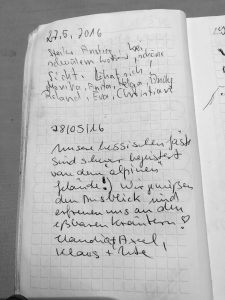 27.5. 2016
Steiler Anstieg, bei
schwülem Wetter, schöne
Sicht. Lohnt sich!
Monika, Anita, Helga,
Roland, Eva, Christian
28/05/16
Unsere hessischen Gäste
sind schwer begeistert
von dem alpinen
Gelände! Wir genießen
den Ausblick und
erfreuen uns an den
eßbaren Kräutern!
Claudia + Axel,
Klaus + Ute